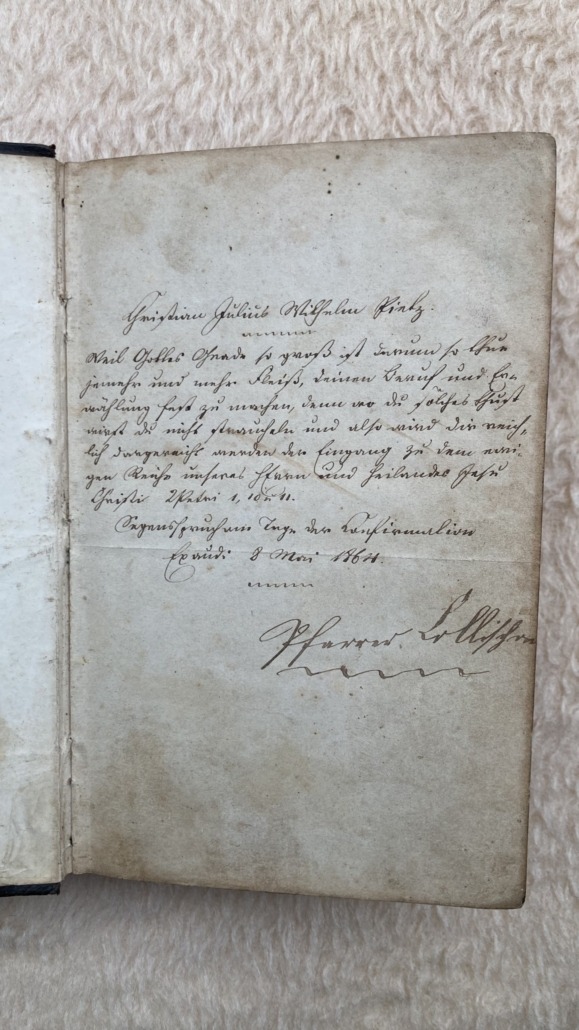 Christian Julius Wilhelm Pietz.
Weil Gottes Gnade so groß ist darum so thue
jemehr und mehr Fleiß, deinen Beruf und Er-
wählung fest zu machen, denn wo du solches thust
wirst du nicht straucheln und also wird dir reich-
lich dargereicht werden der Eingang zu dem ewi-
gen Reiche unseres Herrn und Heilandes Jesu
Christi 2 Petri 1, 10 u 11.
Segensspruch am Tage der Confirmation
Exaudi 8 Mai 1864.
Pfarrer Collischon